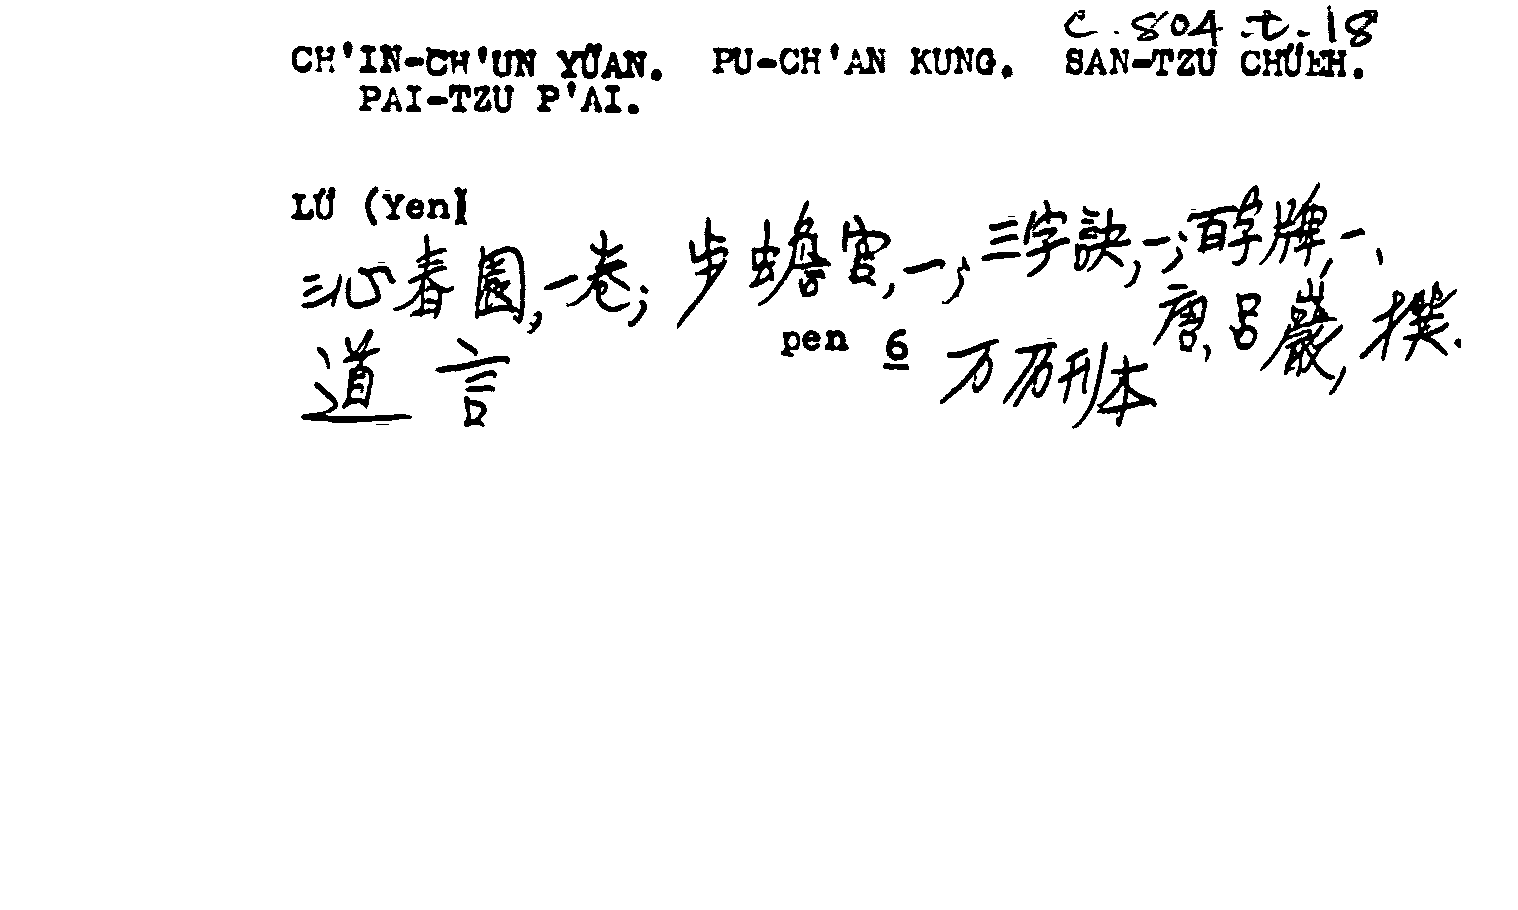 C.804.t.18
CH'IN-CH'UN YÜAN. PU-CH'AN KUNG. SAN-TZU CHÜEH.
PAI-TZU P'AI.
LÜ (Yen)
沁春園,一卷; 步蟾宮,一; 三字訣,一; 百字牌,一、
唐,呂巖,撰.
道言 pen 6 万历刊本